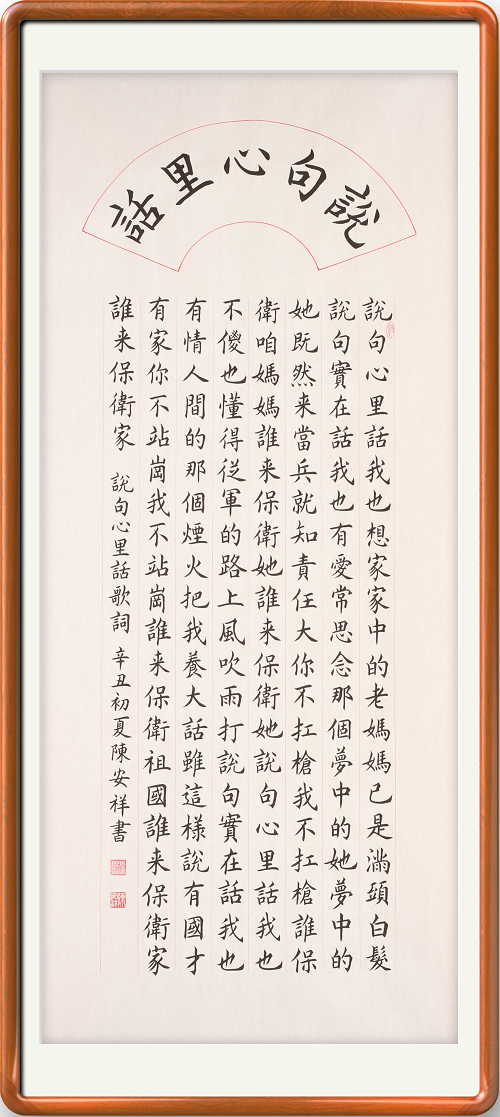 說句心里話
說句心里話我也想家家中的老媽媽已是滿頭白髮
說句實在話我也有愛常思念那個夢中的她夢中的
她既然来當兵就知責任大你不扛槍我不扛槍誰保
衛咱媽媽誰来保衛她誰来保衛她說句心里話我也
不傻也懂得從軍的路上風吹雨打說句實在話我也
有情人間的那個煙火把我養大話雖這樣說有國才
有家你不站崗我不站崗誰来保衛祖國誰来保衛家
誰来保衛家 說句心里話歌詞 辛丑初夏陳安祥書